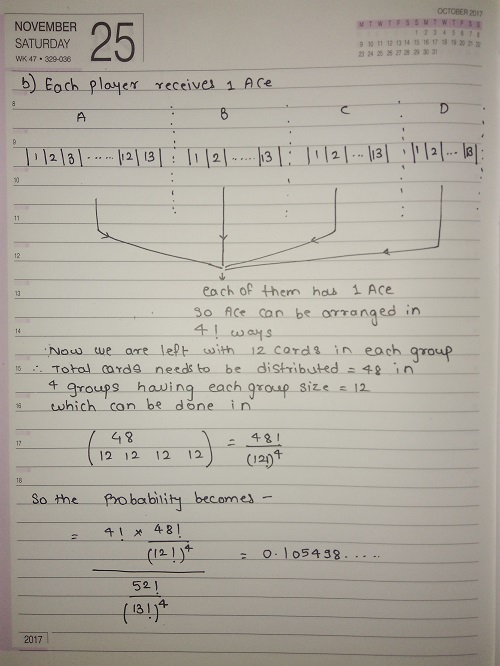 OCTOBER 2017
NOVEMBER
SATURDAY
WK 47 • 329-036
25
M T W T F S S M T W T F S S
1 2 3 4 5 6 7 8
9 10 11 12 13 14 15 16 17 18 19 20 21 22
23 24 25 26 27 28 29 30 31
b) Each player receives 1 Ace
8
A B C D
9
|1|2|3|......|12|13| |1|2|......|13| |1|2|...|13| |1|2|...|13|
10
11
12
13
each of them has 1 Ace
so Ace can be arranged in
14
4! ways
Now we are left with 12 cards in each group
15
∴ Total cards need to be distributed = 48 in
4 groups having each group size = 12
16
which can be done in
17
(48
12 12 12 12) = 48! / (12!)^4
18
So the Probability becomes -
= (4! * 48! / (12!)^4) / (52! / (13!)^4) = 0.105498.....
2017